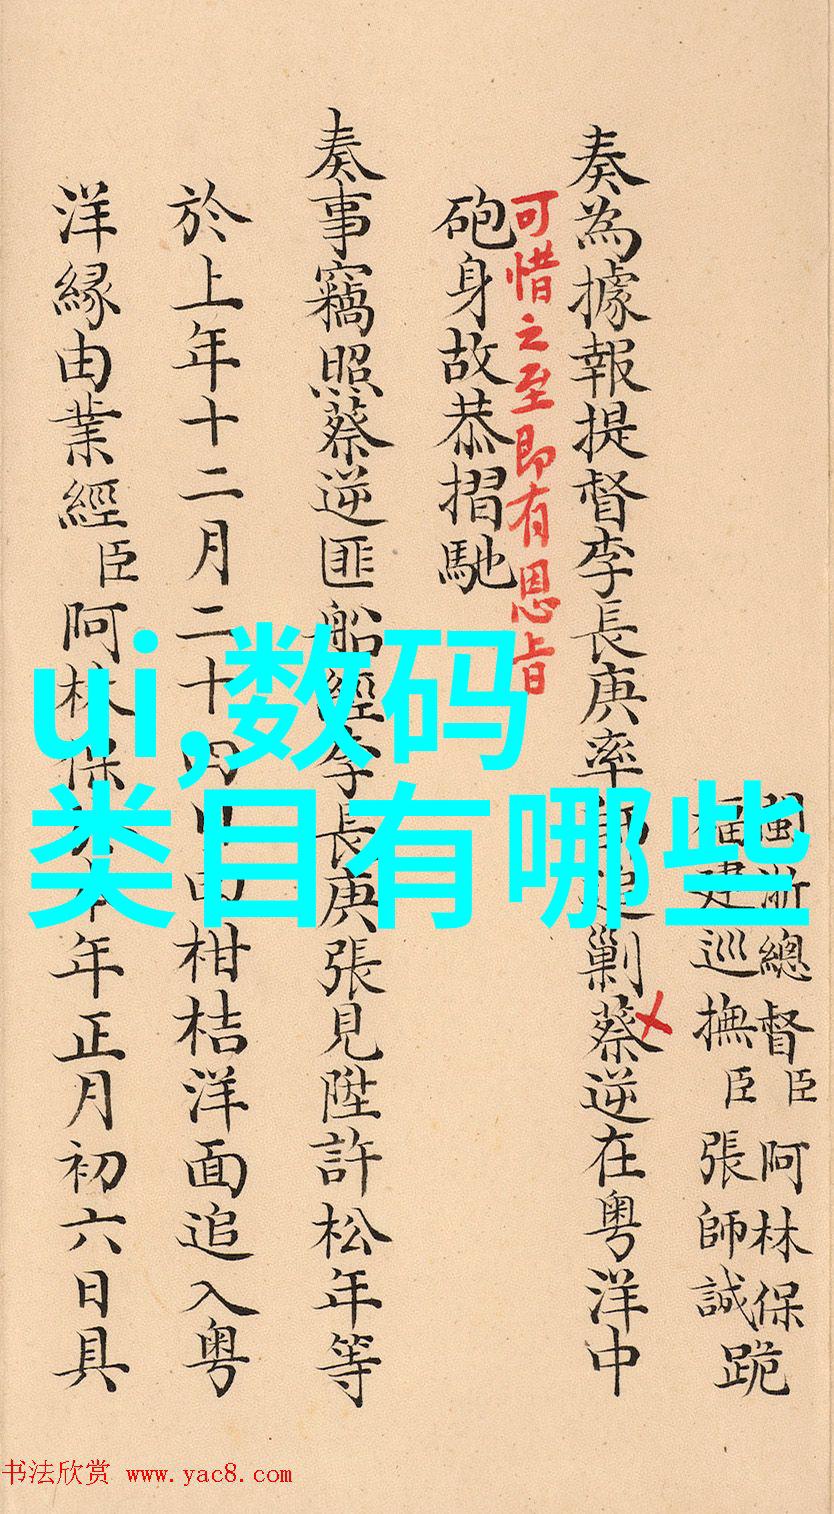 閩浙總督臣阿林保
福建巡撫臣張師誠跪
奏為據報提督李長庚率師追剿蔡逆在粤洋中
可惜之至即有恩旨
砲身故恭摺馳
奏事竊照蔡逆匪船經李長庚張見陞許松年等
於上年十二月二十四日由柑桔洋面追入粤
洋緣由業經臣阿林保於本年正月初六日具
ui,数码
类目有哪些
书法欣赏 www.yac8.com